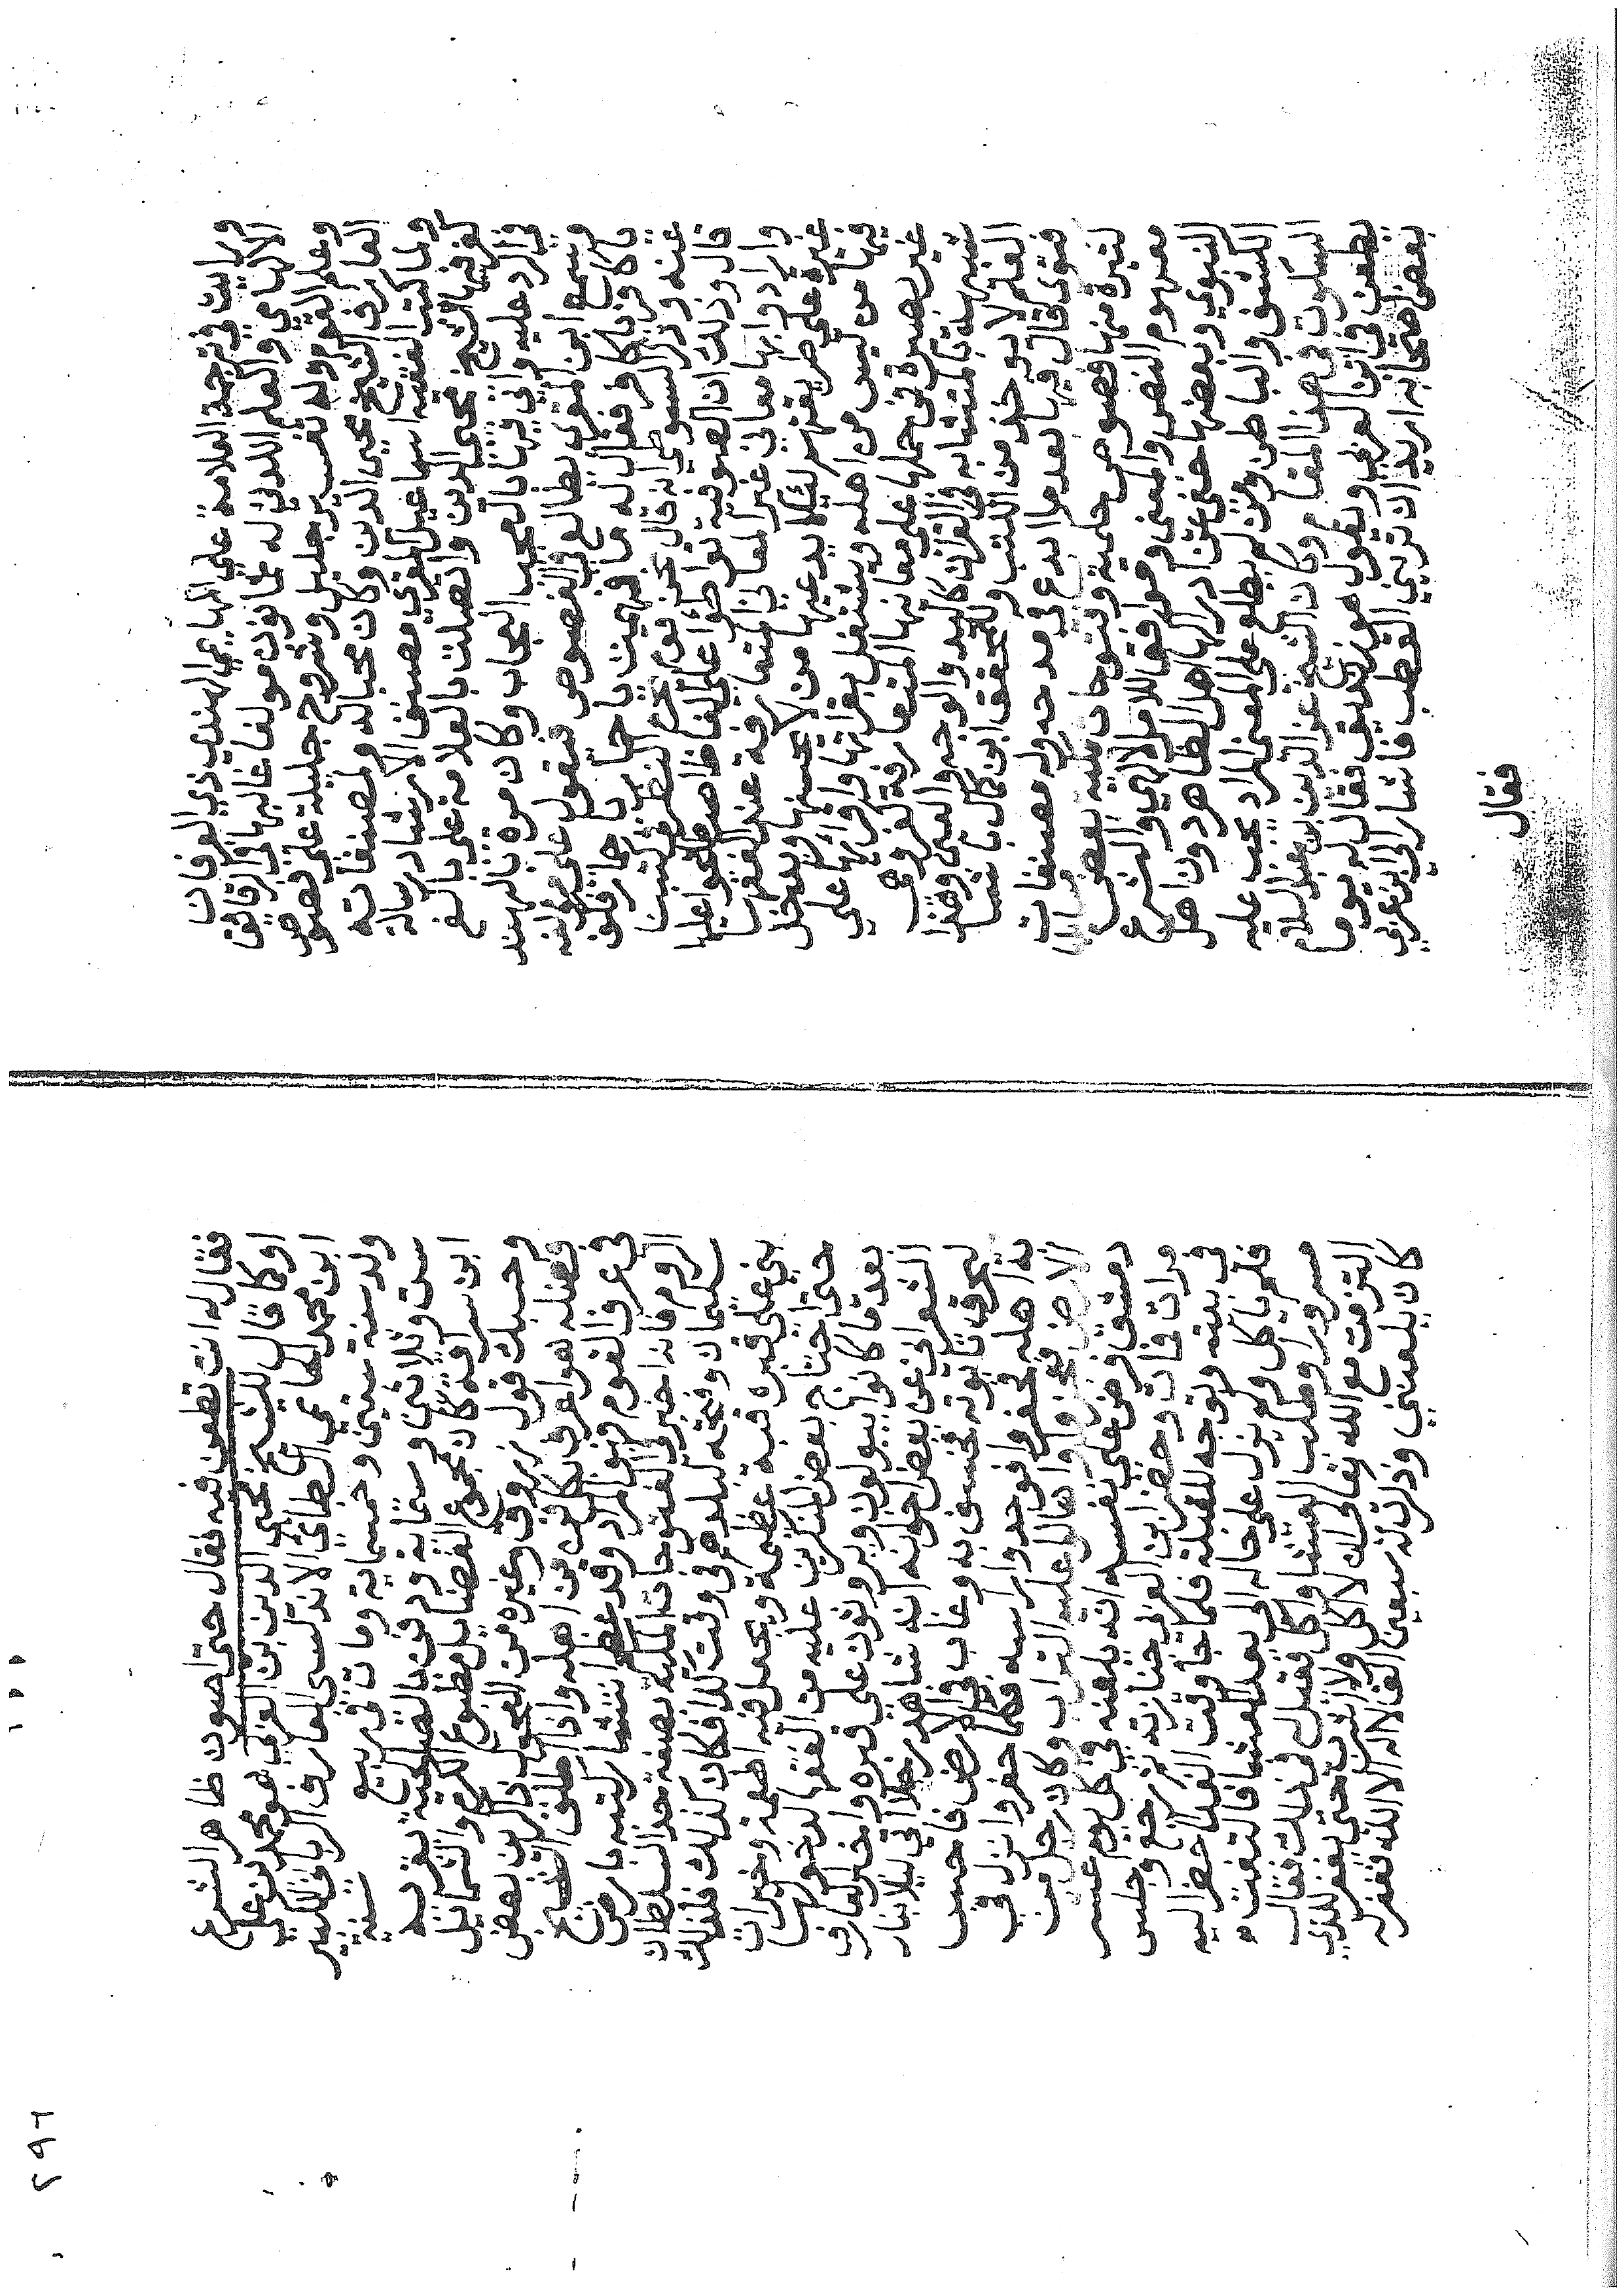 ورايت في ترجمة العلامة علي المهايمي الهندي ذي العرفان
الالهامي والعلم اللدني له مولفا غالبها في الرقايق
وعلم القوم وله تفسير جليل وشروح جليلة علي فصوص
العارف الشيخ محيي الدين وكان محبا له ولمصنفاته
ولما كتب الفقيه اسماعيل المقري مصنف الارشاد رسالة
كفر فيها الشيخ محيي الدين واتصلت بالعلامة علي بالغ
في الرد عليه واتي فيها بالعجب العجاب وكان مرة بالهند
ويسمع ابن المقري يطالع في الفصوص فيقول علي مؤلفه
يا كافر يا كافر فقال له ما فهمت يا حمار يا حمار قلت
عنه وذكر السيوطي انه قال نحن قوم يحرم النظر في كتبنا
قال وذلك ان الصوفية تواطؤا علي الفاظ اصطلحوا عليها
وارادوا بها معاني غير المعاني المتعارفة عند الفقها
غيرة علي طريقتهم ليلا يدعيها من لا يحسنها ويدخل
فيها من ليس من اهله ويشتغل بقراتها واقرائها علي
غير بصيرة فمن حملها علي معانيها المتعارفة كفر وهي
شبيهة بالمتشابه في القران كاليد والوجه والعين وهذا
العلم لا يوخذ من الكتب وللمحقق ابن كمال باشا
فتوى قال فيها بعد ما ابدع في مدحه وله مصنفات
كثيرة منها فصوص حكمية وفتوحات مكية بعض
مفهوم النص والمعنى وموافق للامر الالهي والشرع
النبوي وبعضها خفي عن ادراك اهل الظاهر دون اهل
الكشف والباطن ومن لم يطلع على المعنى المراد يجب عليه
السكوت في هذا المقام وكان الشيخ عز الدين بن عبد السلام
يطعن في ابن العربي ويقول هو زنديق فقال له يوما
بعض اصحابه اريد ان تريني القطب فاشار الى ابن عربي
فقال
فقال له انت تطعن فيه فقال حتى اصون ظاهر الشرع
او كما قال للشيخ محيي الدين بن العربي هو محمد بن علي
ابن محمد الحاتمي الطائي الاندلسي العارف الرباني الكبير
ولد سنة ستين وخمسماية ومات في ربيع سنة
ست وثلاثين وستماية ودفن بالصالحية بقربه
ابن سراقة كان مجموع الفضايل مطبوع الكرم والشمايل
وحسبك قول زروق وغيره من الفحول ذاكرين بعض
فضله هو اعرف بكل فن من اهله واذا اطلق الشيخ
في عرف القوم فهو المراد وقد عظم اشتهار كتبه بارض
الروم فانه اخبر في الفتوحات المكية بصفة جد السلطان
سليمان وفتحه لبلدهم في وقت كذا فكان كذلك فلذلك
بنى علي قبره قبة عظيمة ويجعل فيه اطعمة وخيرات
حتى احتاج بعض المنكرين عليه من الفقها لدخولها
بعد ما كانوا يبولون ويروثون علي قبره واخبر العارف
الشعراني عن بعض اخوانه انه شاهد رجلا اتي ليلا بنار
ليحرق تابوته فخسف به وغاب في الارض فاحس
به اهله فحفروا فوجدوا راسه فكلما حفروا نزل في
الارض فعجزوا واهالوا عليه التراب وكان رجل من
دمشق فرض علي نفسه ان يلعنه في كل يوم عشر
مرات فمات وحضر ابن العربي جنازته ثم رجع وجلس
في بيته وتوجه للقبلة فلما جا وقت الغدا احضر اليه
فلم ياكل ولم يزل علي حاله الى بعد العشا فالتفت
مسرورا وطلب العشا واكل فقيل له في ذلك فقال
التزمت مع الله تعالى ان لا اكل ولا اشرب حتى يغفر للذي
كان يلعنني وذكرت له سبعين الف لا اله الا الله فغفر له